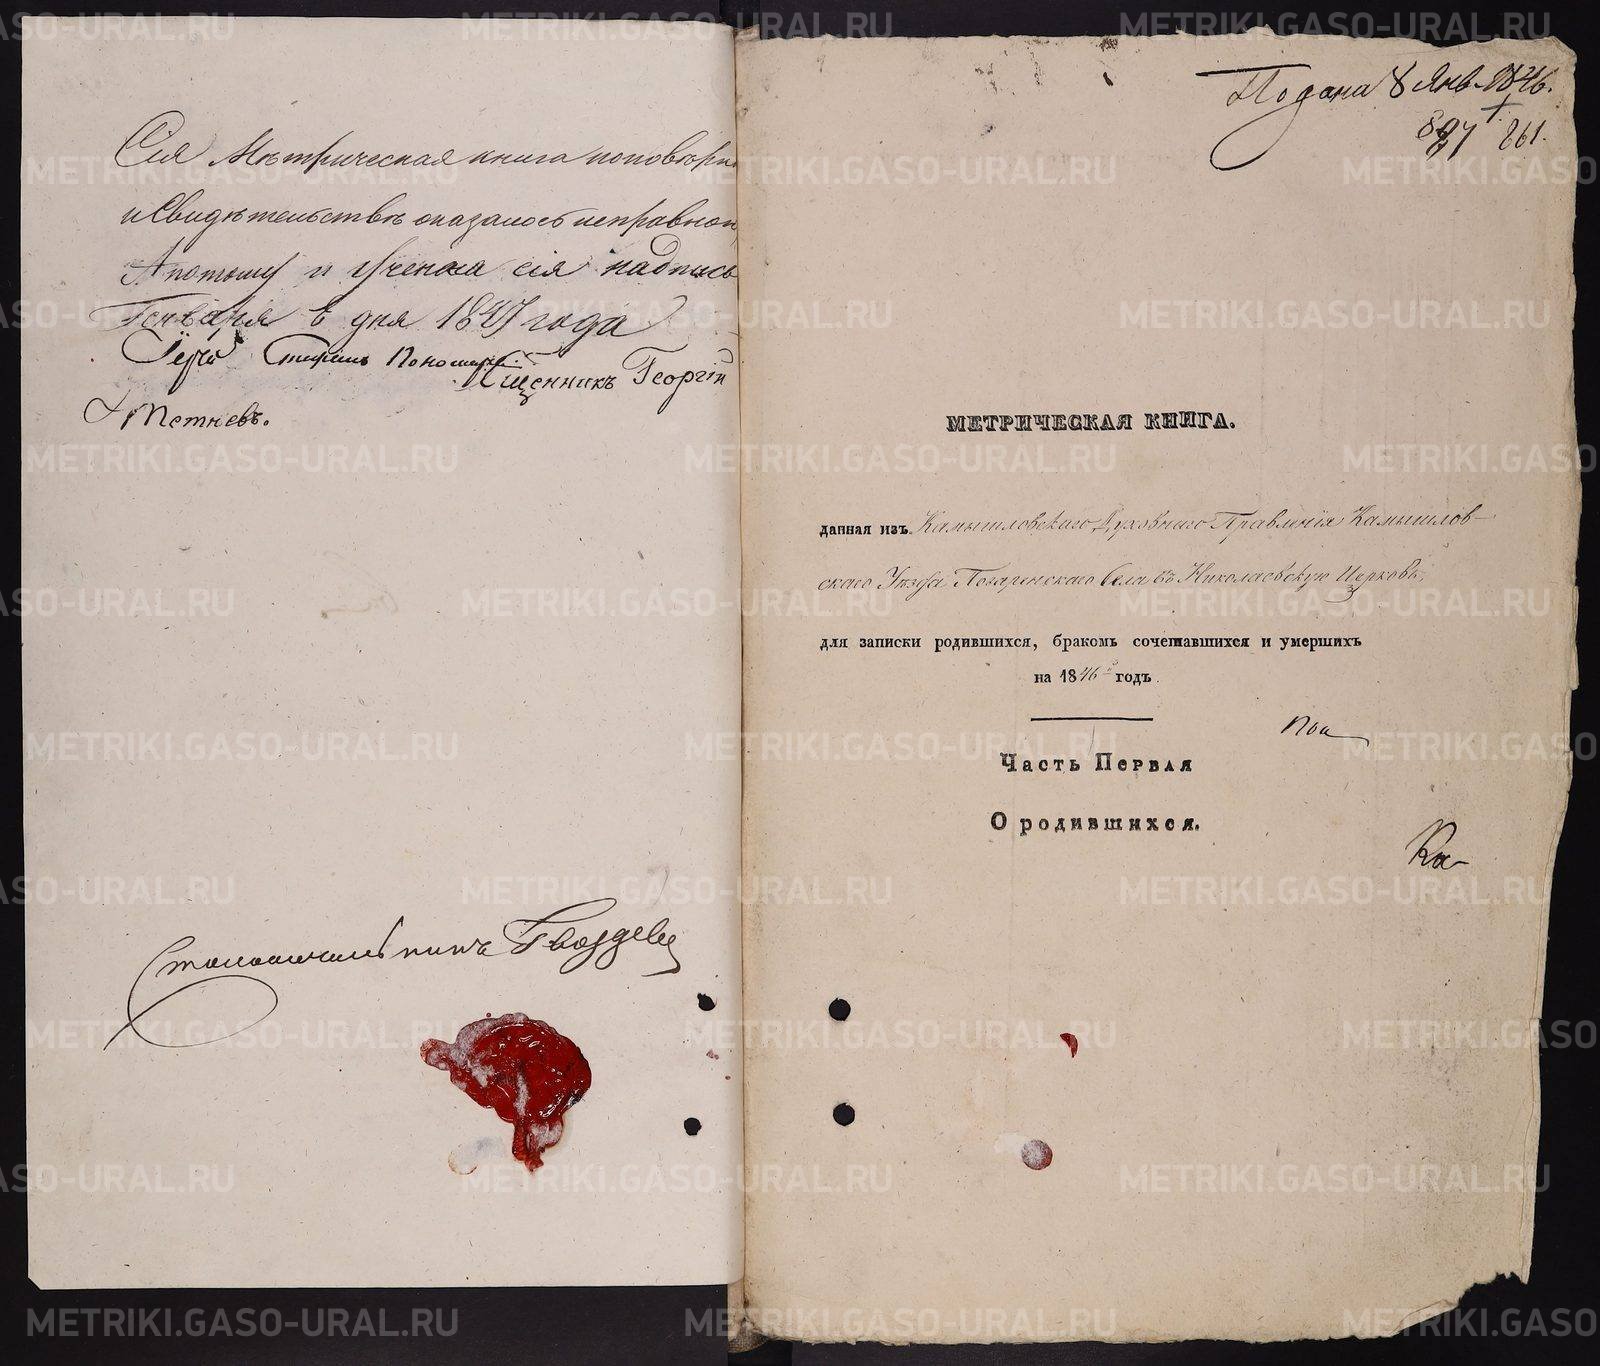 Сія Метрическая книга по поверк
и Свидѣтельствѣ оказалось исправно
А потому и учинена сія надпись
Генваря дня 1847 года
Священникъ Георгій
Столоначальникъ Гвоздевъ
Подана 8 Янв. 1846.
861.
МЕТРИЧЕСКАЯ КНИГА.
данная изъ Камышловскаго Духовнаго Правленія Камышлов-
скаго Уѣзда Села въ Николаевскую Церковь,
для записки родившихся, бракомъ сочетавшихся и умершихъ
на 1846й годъ.
Часть Первая
О родившихся.
Ка-
METRIKI.GASO-URAL.RU